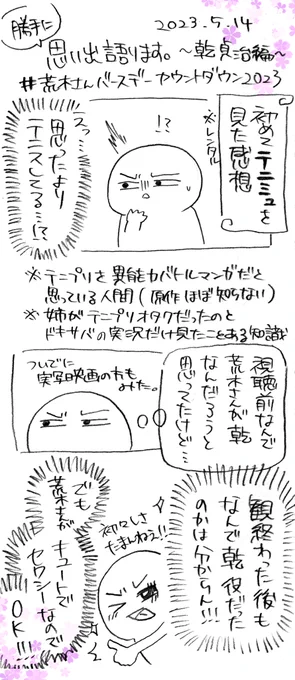 勝手に
2023.5.14
思い出語ります。〜乾貞治編〜
#荒木さんバースデーカウントダウン2023
初めてテニミュを
見た感想
※レンタル
!?
スッ…
思ったより
テニスしてる…!?
※テニプリを異能力バトルマンガだと
思っている人間(原作ほぼ知らない)
※姉がテニプリオタクだったのと
ドキサバの実況だけ見たことある知識
ついでに
実写映画の方も
みた。
視聴前なんで
荒木さんが乾
なんだろうと
思ってたけど…
観終わった後も
なんで乾役だった
のかは分からん!!!
初々しさ
たまんねぇ!!
でも
荒木さんが
キュートで
セクシーなので
OK!!!